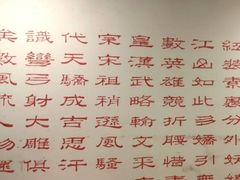 紅裝素裹分外妖
江山如此多嬌引
數英雄競折腰惜
皇漢武略輸文采
宗宋祖稍遜風騷
代天驕成吉思汗
識彎弓射大雕俱
矣數風流人物還